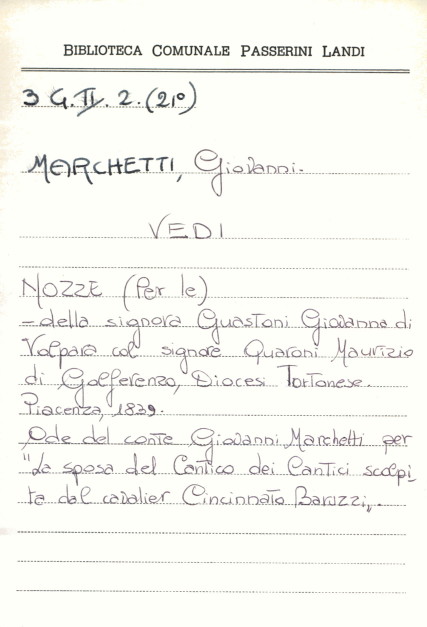 BIBLIOTECA COMUNALE PASSERINI LANDI
3 G.II. 2. (21°)
MARCHETTI, Giovanni.
VEDI
NOZZE (Per le)
- della signora Guastoni Giovanna di
Volpara col signore Quaroni Maurizio
di Golferenzo, Diocesi Tortonese.
Piacenza, 1839.
Ode del conte Giovanni Marchetti per
"La sposa del Cantico dei Cantici scolpi
ta dal cavalier Cincinnato Baruzzi„.